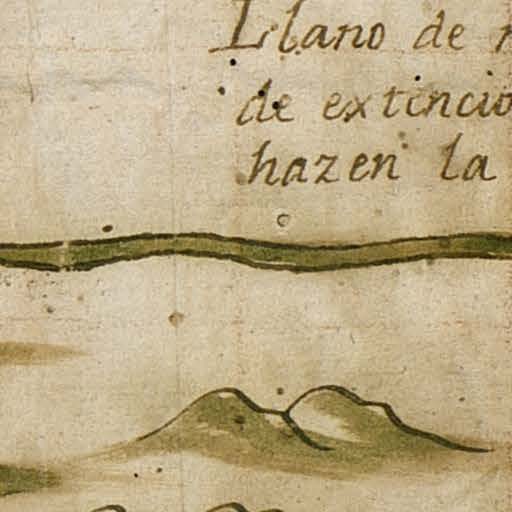 Llano de
de extincio
hazen la